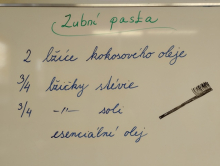 Zubní pasta
2 lžíce kokosového oleje
3/4 lžičky stévie
3/4 -"- soli
esenciální olej